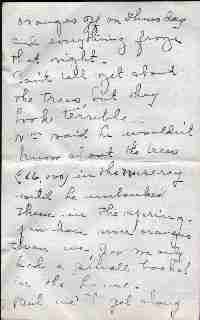 oranges off on Thursday
and everything froze
that night.
Can't tell yet about
the trees, but they
look terrible.
Wm said he wouldn't
know about the trees
(66,000) in the nursery
until he unbanked
them in the spring.
You have more oranges
than we. You may
have a small basket
in the home.
Paul will get along